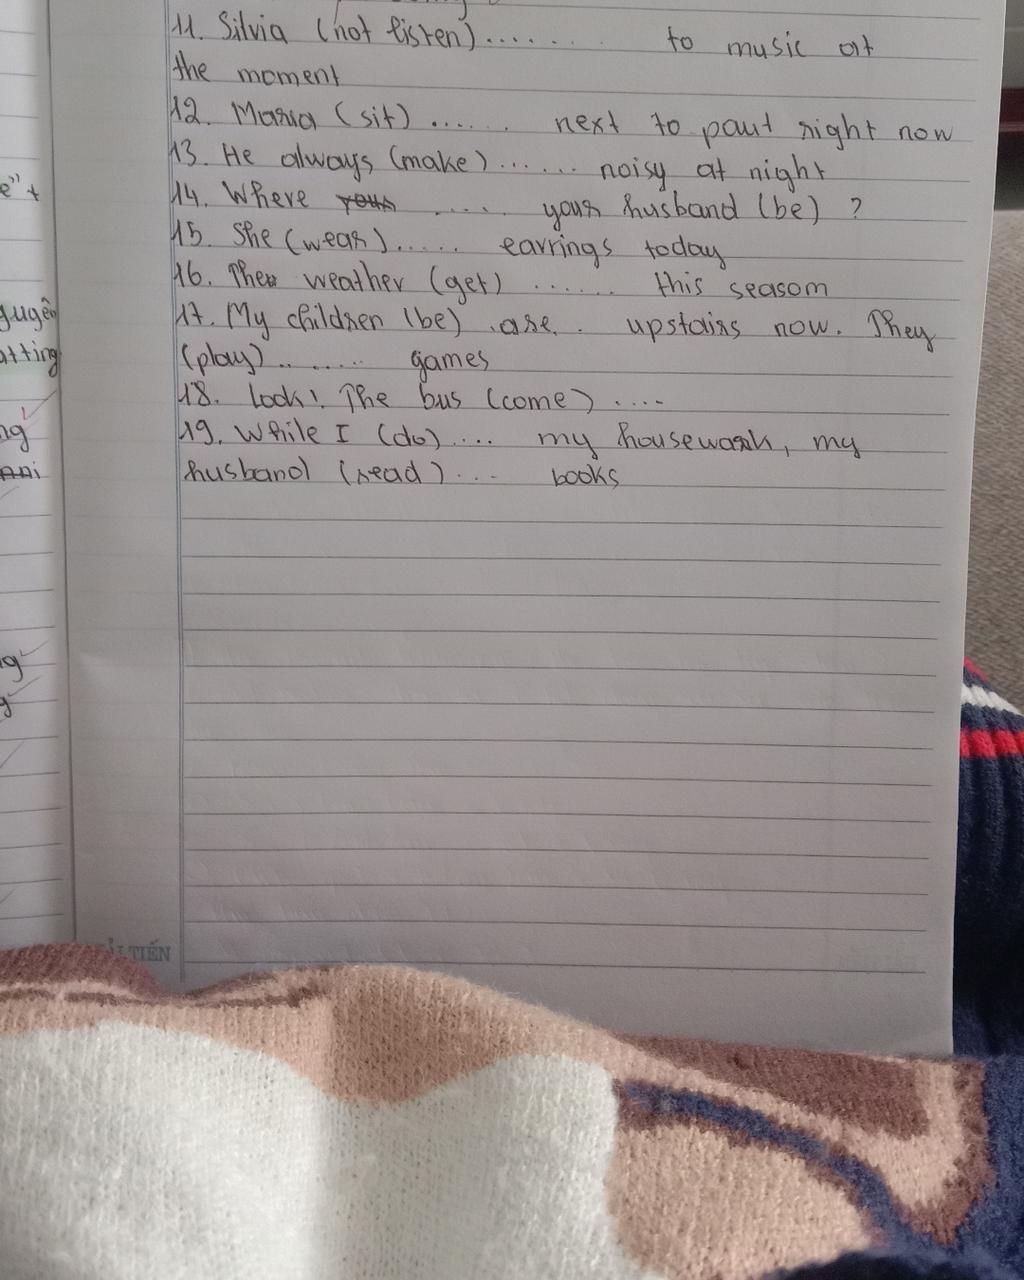 11. Silvia (not listen)........ to music at
the moment
12. Maria (sit) ....... next to paul right now
13. He always (make) ...... noisy at night
14. Where your ..... your husband (be) ?
15. She (wear)...... earrings today
16. The weather (get) ....... this season
17. My children (be) .are. upstairs now. They
(play)....... games
18. Look! The bus (come) ....
19. While I (do).... my housework, my
husband (read) ... books
e" +
ng
TIẾN